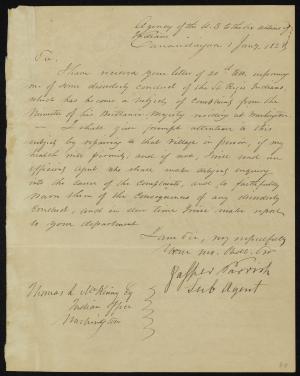 Agency of the U.S to the six nations of
Indians
Canandaigua 1 Jany. 182
Sir,
I have received your letter of 20th Ult. informing
me of some disorderly conduct of the St Regis Indians
which has become a subject of complaint from the
Minister of his Brittanic Majesty residing at Washington
— I shall give prompt attention to this
subject by repairing to that Village in person, if my
health will permit, and if not, I will send an
efficient agent who shall make diligent enquiry
into the cause of the complaints, and to faithfully
warn them of the consequences of any disorderly
conduct, and in due time I will make report
to your department
I am Sir, very respectfully
Your mo. Obdt. Svt
Jasper Parrish
Sub Agent
Thomas L McKinney Esq
Indian Office
Washington